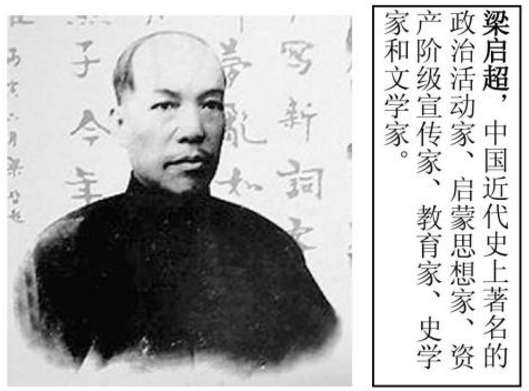 梁启超，中国近代史上著名的
政治活动家、启蒙思想家、资
产阶级宣传家、教育家、史学
家和文学家。
写新詞
夢亂如
子今年